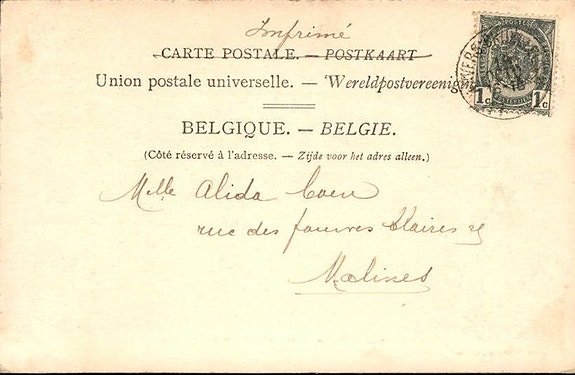 Imprimé
CARTE POSTALE. — POSTKAART
Union postale universelle. — 'Wereldpostvereeniging
BELGIQUE. — BELGIE.
(Côté réservé à l'adresse. — Zijde voor het adres alleen.)
1c 1c
Melle Alida Coen
rue des pauvres Claires
Malines